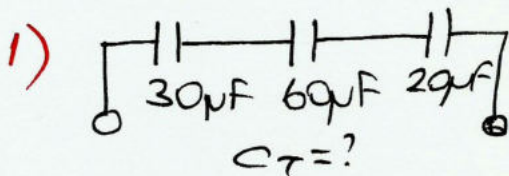 1)
30μF 60μF 20μF
C_T=?